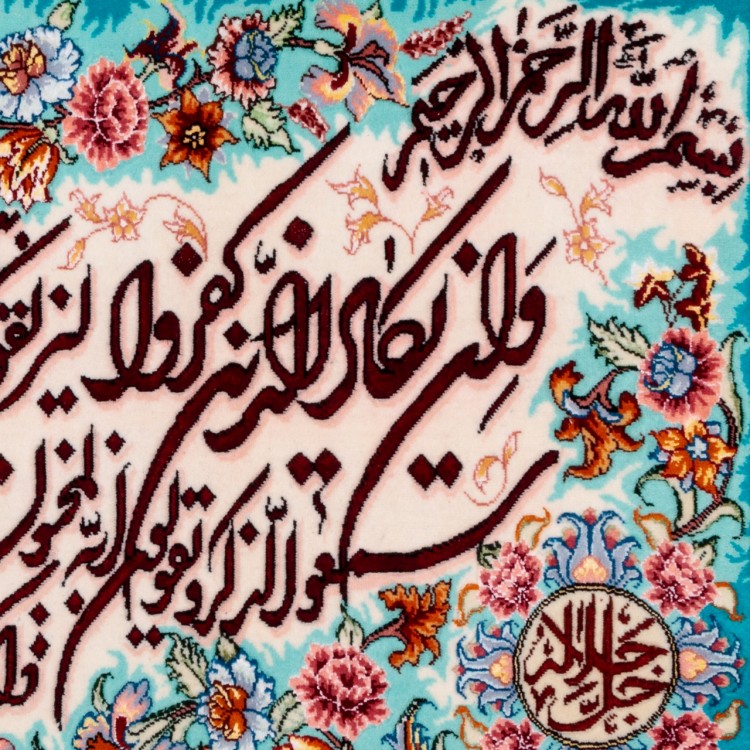 بسم الله الرحمن الرحیم
وان یکاد الذین کفروا لیز
سمعوا الذکر و یقولون انه لمجنون
جل جلاله